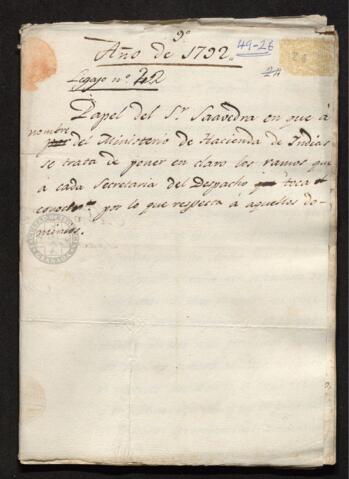 9º
Año de 1792.
49-26
24
Legajo nº 42
Papel del Sr. Saavedra en que á
nombre del Ministerio de Hacienda de Indias
se trata de poner en claro los ramos que
a cada Secretaria del Despacho toca
por lo que respecta a aquellos do-
minios.